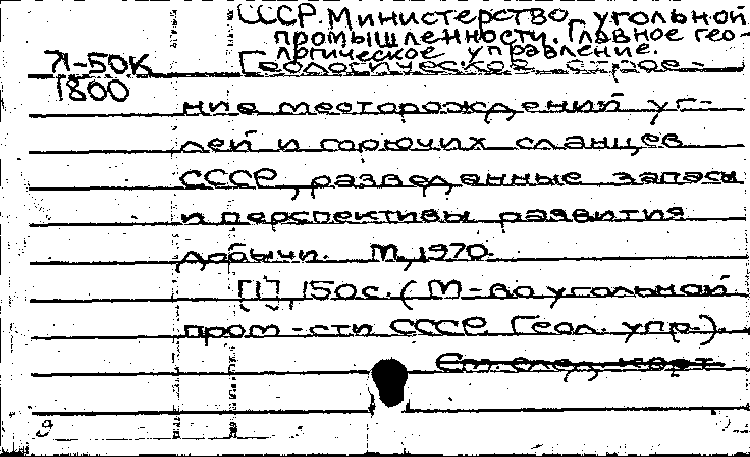 СССР. Министерство угольной
промышленности. Главное гео-
логическое управление.
71-50К
1800
Геологическое строе-
ние месторождений уг-
лей и горючих сланцев
СССР, разведанные запасы
и перспективы развития
добычи. М., 1970.
[1], 150 с. (М-во угольной
пром-сти СССР. Геол. упр.).
См. след. карт.